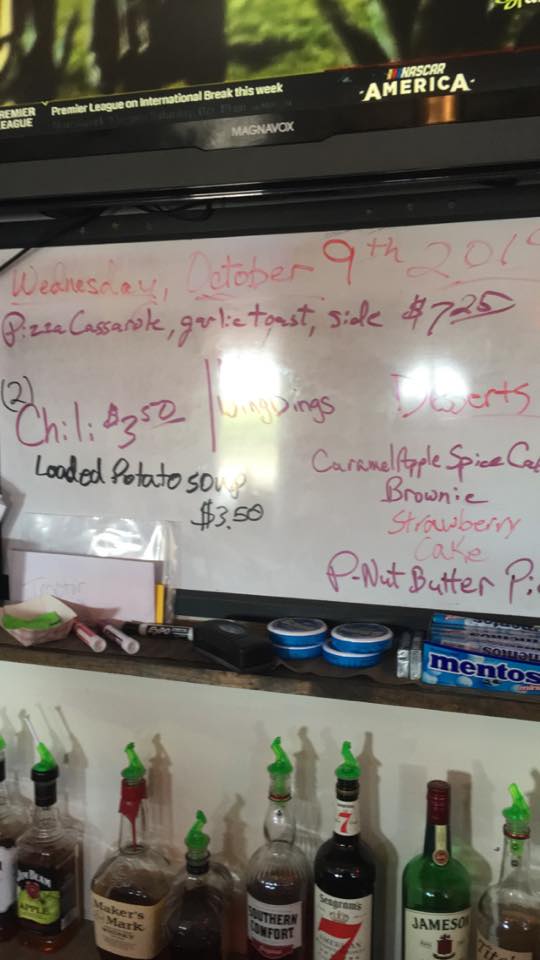 PREMIER
LEAGUE
Premier League on International Break this week
NASCAR
AMERICA
MAGNAVOX
Wednesday, October 9th 2019
Pizza Cassarole, garlic toast, side $7.25
(2)
Chili $3.50
WingDings
Loaded Potato soup
$3.50
Desserts
Caramel Apple Spice Cak
Brownie
Strawberry
Cake
P-Nut Butter Pi
mentos
JIM BEAM
APPLE
Maker's
Mark
WHISKY
SOUTHERN
COMFORT
7
Seagram's
7
AMERICAN
JAMESON
Tito's